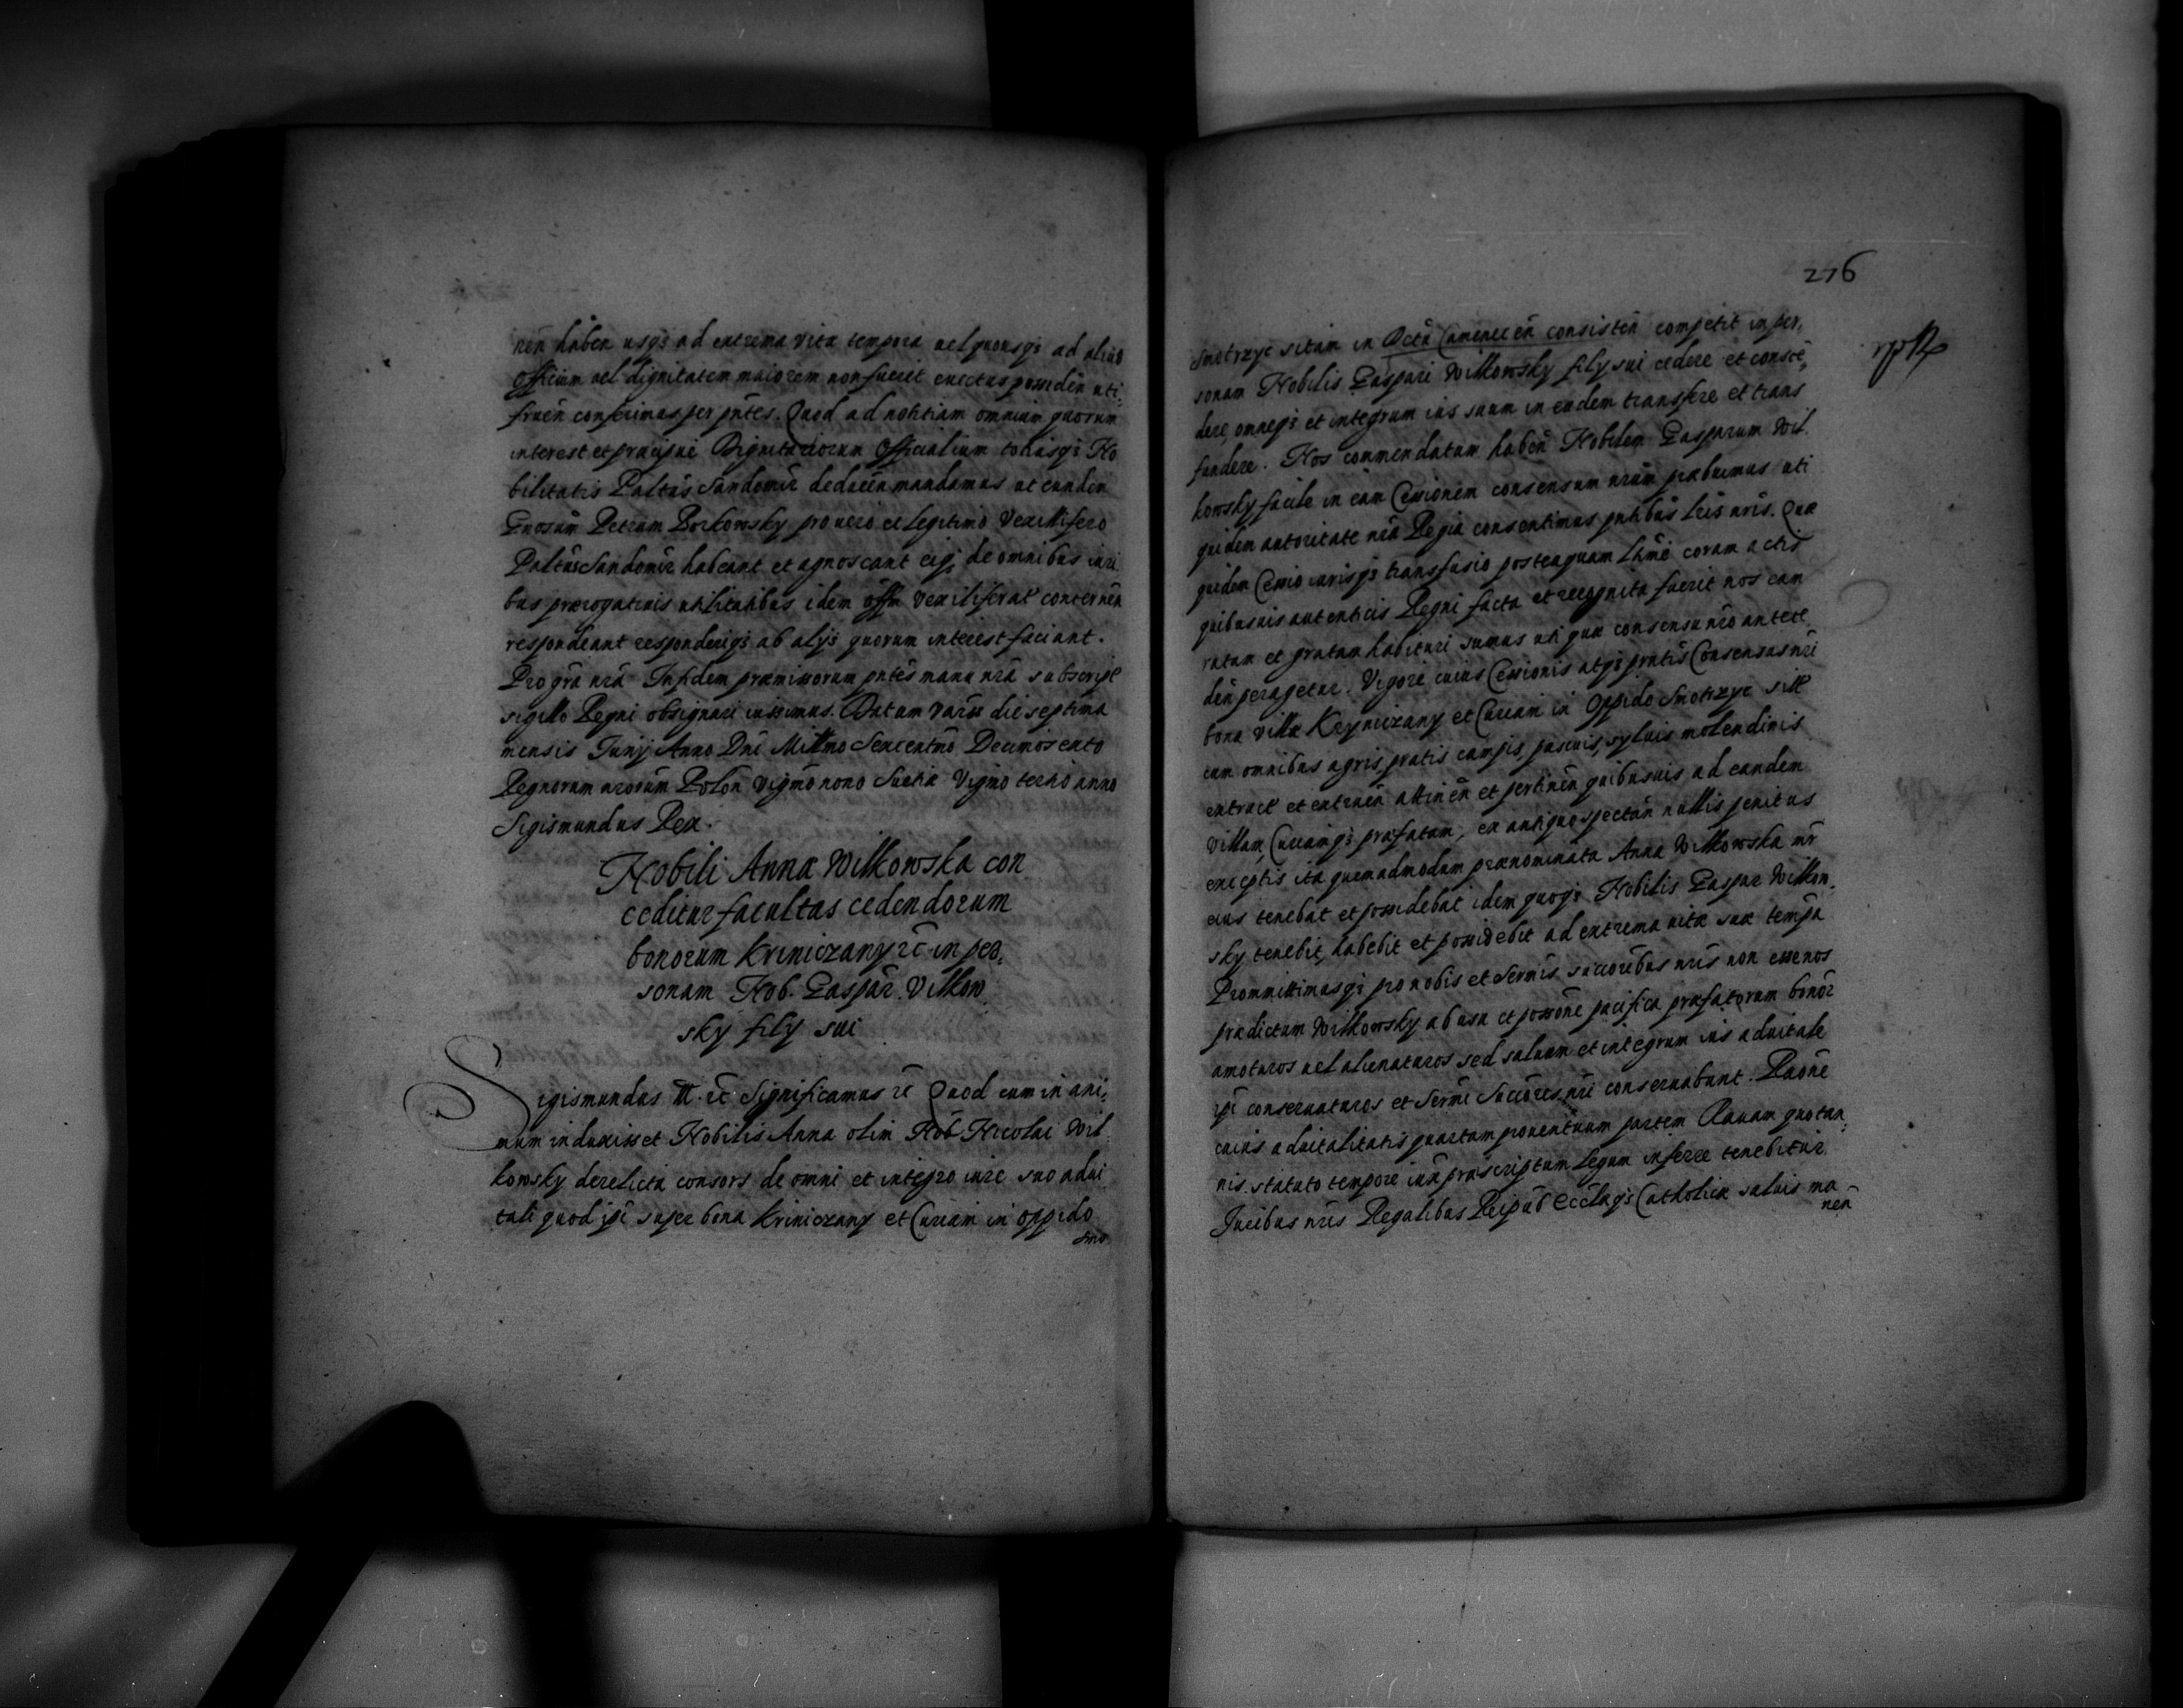 nēn haben usq; ad extrema vitæ tempora vel quousq; ad aliud
Officium vel dignitatem maiorem non fuerit euectus possiden uti:
fruēn conferimus per pntes. Quod ad notitiam omnium quorum
interest et præcipue Dignitariorum Officialium totiusq; No
bilitatis Paltūs Sandomir deducēn mandamus ut eundem
Gnosum Petrum Borkowsky pro uero et legitimo Vexillifero
Paltūs Sandomir habeant et agnoscant eiq; de omnibus iuri
bus prærogatiuis utilitatibus idem offm vexiliferat concernēn
respondeant responderiq; ab alijs quorum interest faciant.
Pro gra nra In fidem præmissorum pntes manu nra subscript
sigillo Regni obsignari iussimus. Datum Varss die septima
mensis Junij Anno Dni Millmo Sexcentmo Decimosexto
Regnorum nrorum Polon vigmo nono Suetiæ vigmo tertio anno
Sigismundus Rex.
Nobili Annæ Wilkowska con
ceditur facultas cedendorum
bonorum Kriniczany &c in per
sonam Nob. Gaspar. Vilkow
sky filÿ sui
Sigismundus III. &c Significamus &c Quod cum in ani:
mum induxisset Nobilis Anna olim Nob Nicolai Wil
kowsky derelicta consors de omni et integro iure suo adui
tali quod ipi super bona Kriniczany et Curiam in oppido
Smo
276
Smotrzyc sitam in Dictū Camenecēn consistēn competit in per,
sonam Nobilis Gaspari Wilkowsky filÿ sui cedere et conscē,
dere, omneq; et integrum ius suum in eudem transfere et trans
fundere. Nos commendatum habēn Nobilem Gasparum Wil
kowsky facile in eam Cessionem consensum nrum præbuimus uti
quidem autoritate nra Regia consentimus pntibus lris nris. Quæ
quidem Cessio iurisq; transfusio posteaquam ltime coram actis
quibusuis autenticis Regni facta et recognita fuerit nos eam
ratam et gratam habituri sumus uti quæ consensu nro antece
dēn peragetur. Vigore cuius Cessionis atq; pntis Consensus nri
bona villæ Krynuczany et Curiam in Oppido Smotrzyc sitt
cum omnibus agris, pratis campis, pascuis, syluis molendinis
extruct et extruēn attinēn et pertinēn quibusuis ad eandem
villam, Curiamq; præfatam, ex antiquo spectān nullis penitus
exceptis ita quemadmodum prænominata Anna Wilkowska mr
eius tenebat et possidebat idem quoq; Nobilis Gaspar Wilkow,
sky tenebit, habebit et possidebit ad extrema uitæ suæ tempa
Promittimusq; pro nobis et Sermis succoribus nris non esse nos
prædictum Wilkowsky ab usu et possone pacifica præfatorum bonor
amoturos uel alienaturos sed saluum et integrum ius aduitale
ipi conseruaturos et Sermi Succores nri conseruabunt. Raone
cuius aduitalitatis quartam prouentuum partem Rauam quotan,
nis statuto tempore iuxa præscriptum legum inferre tenebitur.
Juribus nris Regalibus Reipub Ecclæq; Catholicæ saluis ma
nēn